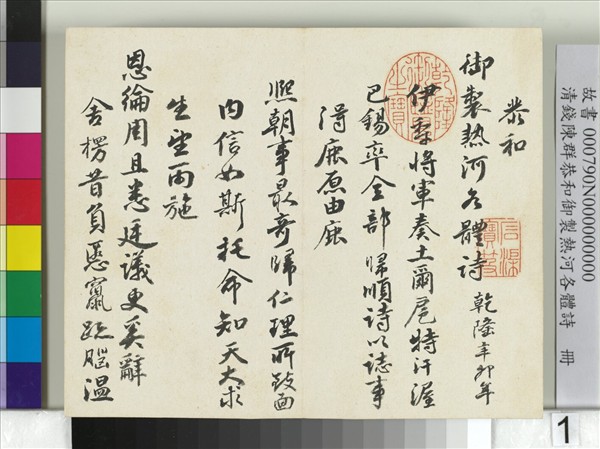 故書 000790N000000000
清錢陳群恭和御製熱河各體詩 冊
恭和
御製熱河各體詩 乾隆辛卯年
伊犂將軍奏土爾扈特汗渥
巴錫率全部歸順詩以誌事
得原由
熙朝事最奇歸仁理所致面
內信如斯托命知天大求
生望雨施
恩綸周且悉廷議更奚辭
舍楞昔負慝竄跡腦溫
乾隆御覽之寶
石渠寶笈
1